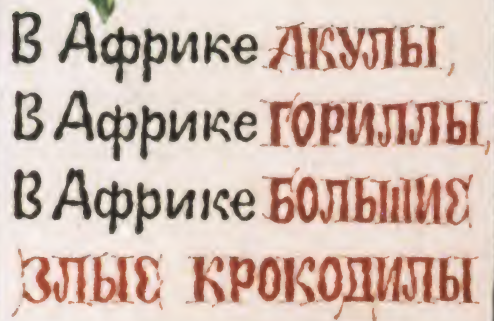 В Африке АКУЛЫ,
В Африке ГОРИЛЛЫ,
В Африке БОЛЬШИЕ
ЗЛЫЕ КРОКОДИЛЫ